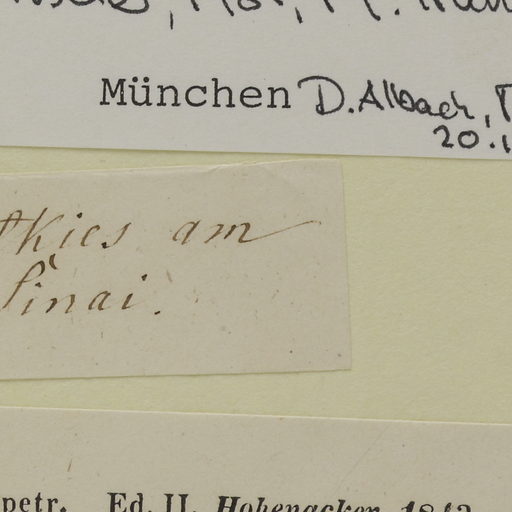 München D. Albach,
20.
kies am
Sinai.
petr. Ed. II. Hohenacker. 1843.